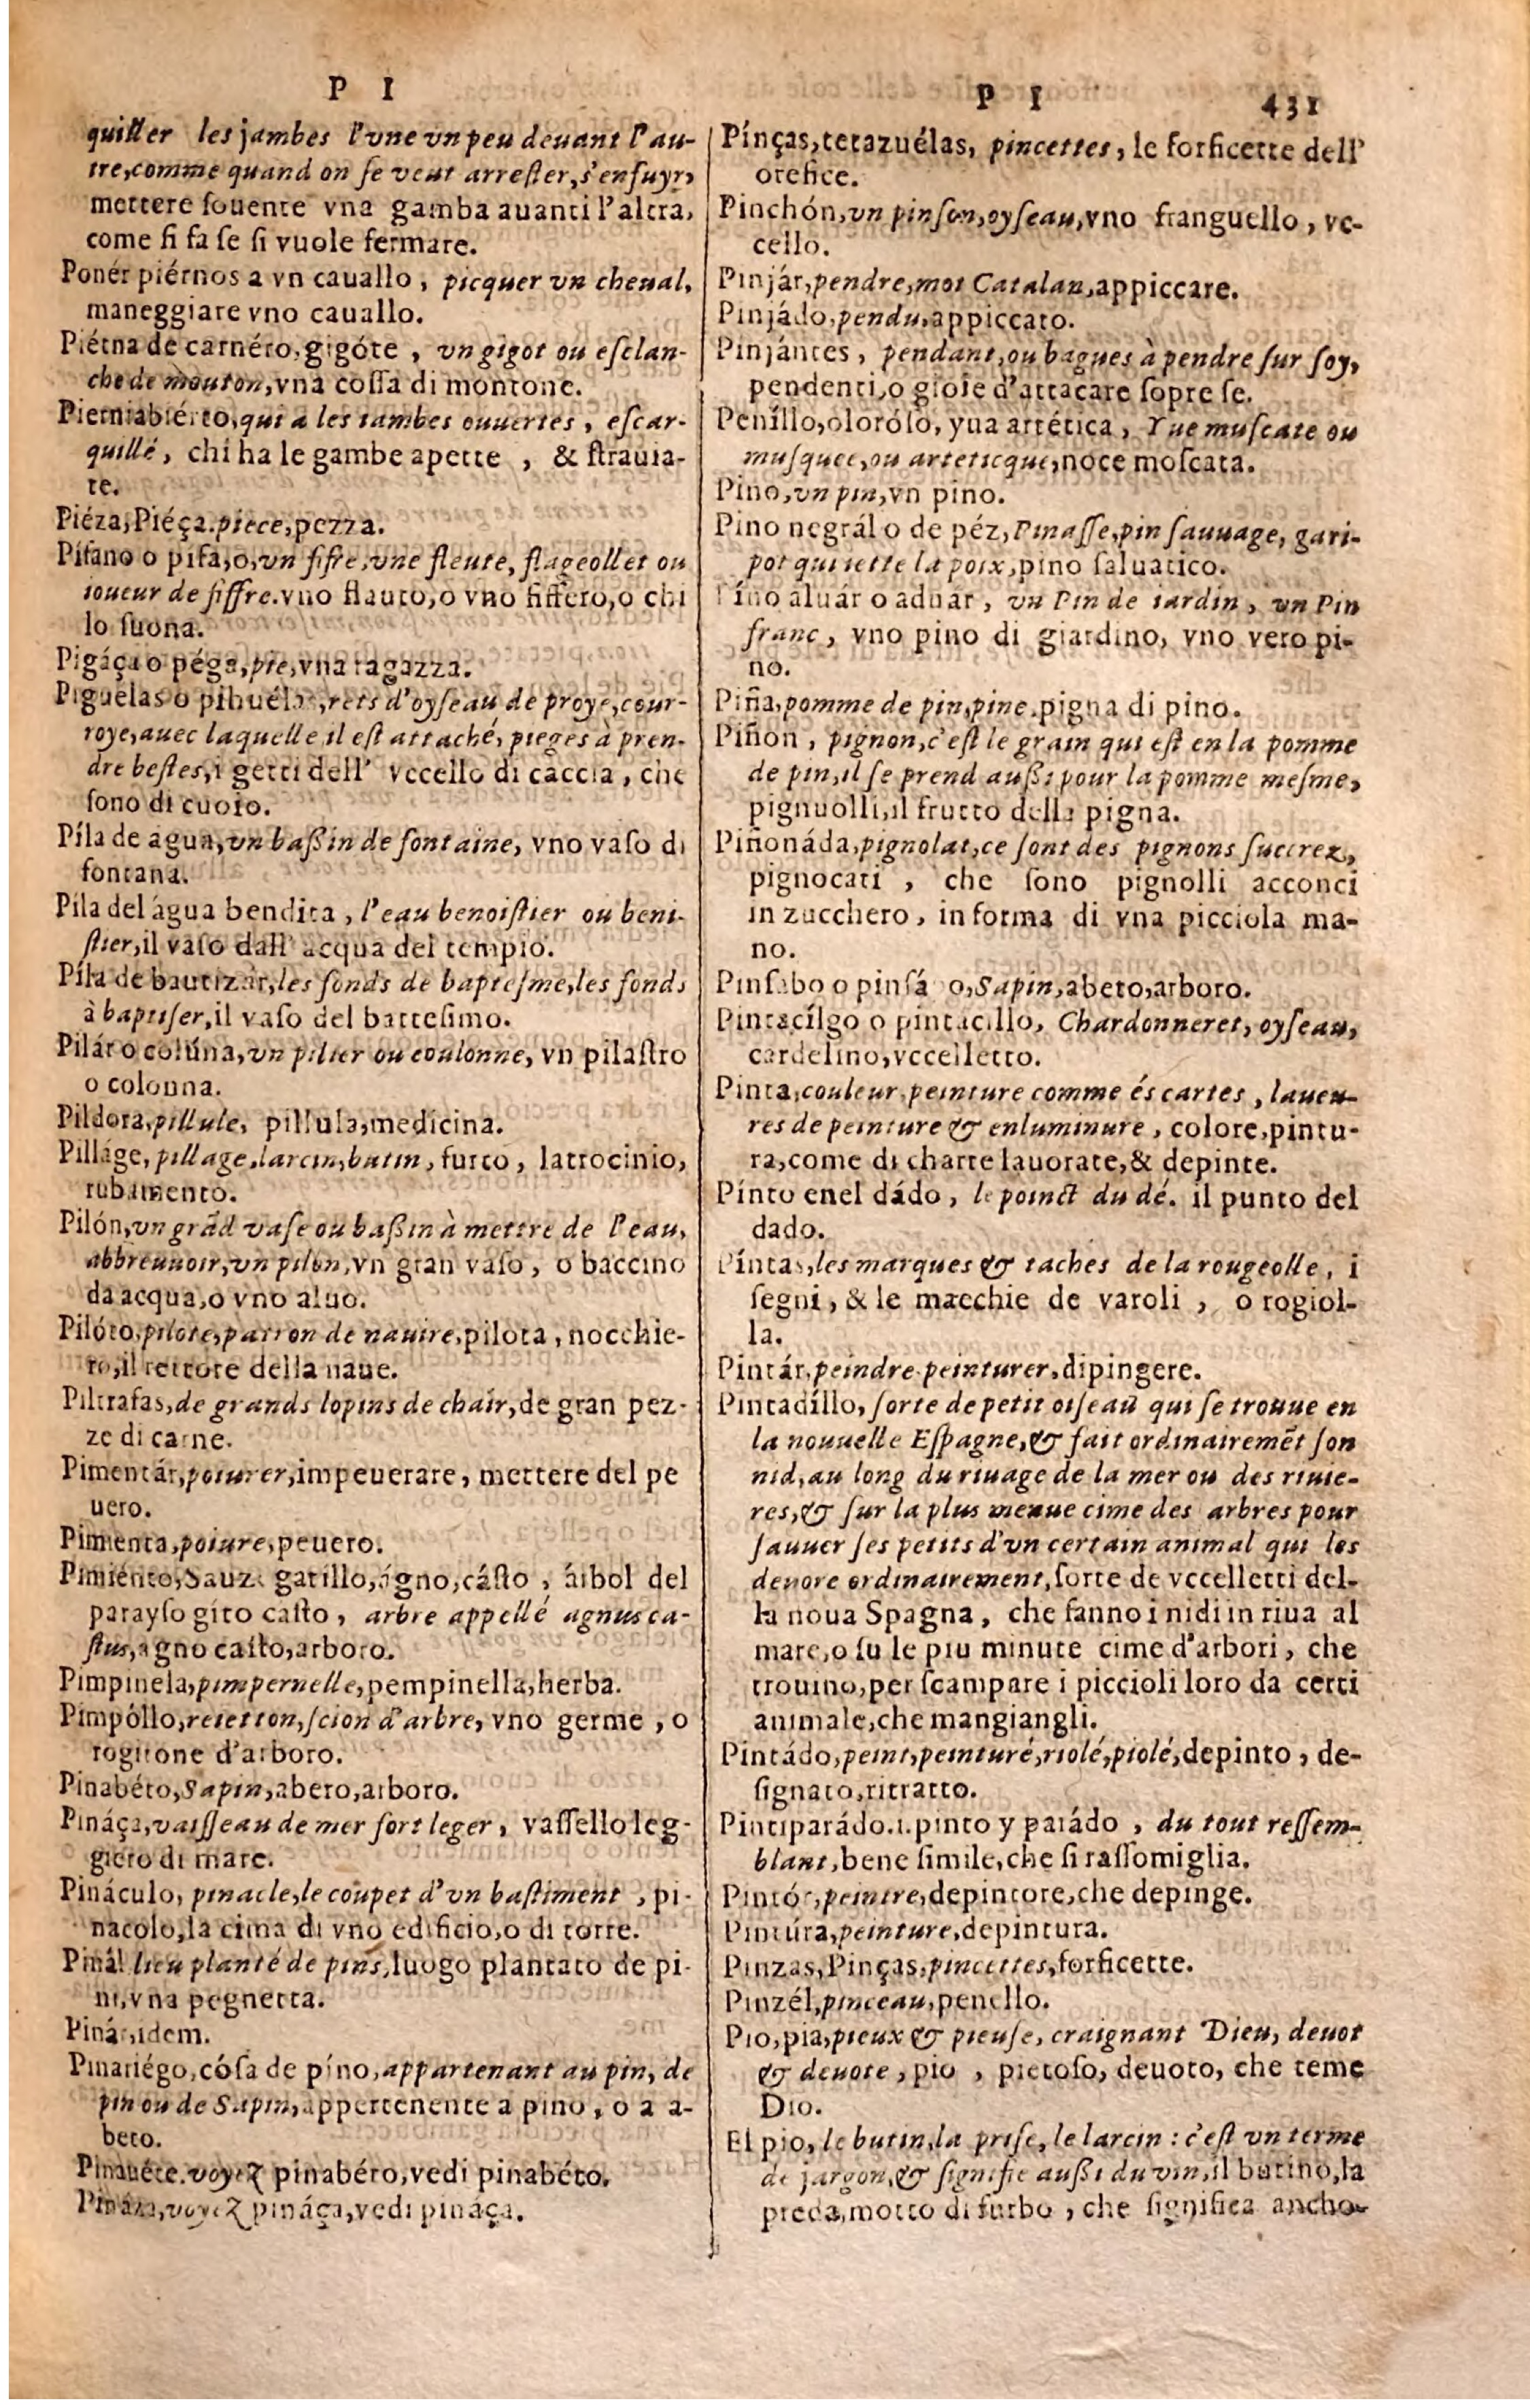 P I
quiller les jambes l'vne vn peu deuant l'au-
tre, comme quand on se veut arrester, s'ensuyr,
mettere souente vna gamba auanti l'altra,
come si fa se si vuole fermare.
Ponér piérnos a vn cauallo, picquer vn cheual,
maneggiare vno cauallo.
Piérna de carnéro, gigóte, vn gigot ou esclan-
che de mouton, vna cossa di montone.
Pierniabiérto, qui a les iambes ouuertes, escar-
quillé, chi ha le gambe aperte, & strauia-
te.
Piéza, Piéça. piece, pezza.
Pífano o pifa,o, vn fifre, vne fleute, flageollet ou
ioueur de fiffre. vno flauto, o vno fiffero, o chi
lo suona.
Pigáça o péga, pie, vna ragazza.
Piguelas o pihuélas, rets d'oyseau de proye, cour-
roye, auec laquelle il est attaché, pieges à pren-
dre bestes, i getti dell' vccello di caccia, che
sono di cuoio.
Píla de agua, vn baßin de fontaine, vno vaso di
fontana.
Pila del água bendita, l'eau benoistier ou beni-
stier, il vaso dall' acqua del tempio.
Píla de bautizár, les fonds de baptesme, les fonds
à baptiser, il vaso del battesimo.
Pilár o colúna, vn pilier ou coulonne, vn pilastro
o colonna.
Pildora, pillule, pillula, medicina.
Pilláge, pillage, larcin, butin, furto, latrocinio,
rubamento.
Pilón, vn grãd vase ou baßin à mettre de l'eau,
abbreuuoir, vn pilon, vn gran vaso, o baccino
da acqua, o vno aluo.
Pilóto, pilote, patron de nauire, pilota, nocchie-
ro, il rettore della naue.
Piltrafas, de grands lopins de chair, de gran pez-
ze di carne.
Pimentár, poiurer, impeuerare, mettere del pe
uero.
Pimenta, poiure, peuero.
Pimiénto, Sauze gatíllo, ágno, cásto, árbol del
parayso gíto casto, arbre appellé agnus ca-
stus, agno casto, arboro.
Pimpinela, pimpernelle, pempinella, herba.
Pimpóllo, reietton, scion d'arbre, vno germe, o
rogitone d'arboro.
Pinabéto, Sapin, abeto, arboro.
Pináça, vaisseau de mer fort leger, vassello leg-
giero di mare.
Pináculo, pinacle, le coupet d'vn bastiment, pi-
nacolo, la cima di vno edificio, o di torre.
Pinál lieu planté de pins, luogo plantato de pi-
ni, vna pegnetta.
Pinár, idem.
Pinariégo, cósa de píno, appartenant au pin, de
pin ou de Sapin, appertenente a pino, o a a-
beto.
Pinauéte. voyez pinabéto, vedi pinabéto.
Pináza, voyez pináça, vedi pináça.
P I 431
Pínças, terazuélas, pincettes, le forficette dell'
orefice.
Pinchón, vn pinson, oyseau, vno franguello, vc-
cello.
Pinjár, pendre, mot Catalan, appiccare.
Pinjádo, pendu, appiccato.
Pinjántes, pendant, ou bagues à pendre sur soy,
pendenti, o gioie d'attacare sopre se.
Penillo, oloróso, yua artética, Yue muscate ou
musquee, ou arteticque, noce moscata.
Pino, vn pin, vn pino.
Pino negrál o de péz, Pinasse, pin sauuage, gari-
pot qui iette la poix, pino saluatico.
Píno aluár o aduar, vn Pin de iardin, vn Pin
franc, vno pino di giardino, vno vero pi-
no.
Piña, pomme de pin, pine. pigna di pino.
Piñon, pignon, c'est le grain qui est en la pomme
de pin, il se prend außi pour la pomme mesme,
pignuolli, il frutto della pigna.
Piñonáda, pignolat, ce sont des pignons succrez,
pignocati, che sono pignolli acconci
in zucchero, in forma di vna picciola ma-
no.
Pinsabo o pinsá o, Sapin, abeto, arboro.
Pintacílgo o pintacillo, Chardonneret, oyseau,
cardelino, vccelletto.
Pinta, couleur, peinture comme és cartes, laueu-
res de peinture & enluminure, colore, pintu-
ra, come di charte lauorate, & depinte.
Pínto enel dádo, le poinct du dé. il punto del
dado.
Píntas, les marques & taches de la rougeolle, i
segni, & le macchie de varoli, o rogiol-
la.
Pintár, peindre peinturer, dipingere.
Pintadíllo, sorte de petit oiseau qui se trouue en
la nouuelle Espagne, & fait ordinairemẽt son
nid, au long du riuage de la mer ou des riuie-
res, & sur la plus menue cime des arbres pour
sauuer ses petits d'vn certain animal qui les
deuore ordinairement, sorte de vccelletti del-
la noua Spagna, che fanno i nidi in riua al
mare, o su le piu minute cime d'arbori, che
trouino, per scampare i piccioli loro da certi
animale, che mangiangli.
Pintádo, peint, peinturé, riolé, piolé, depinto, de-
signato, ritratto.
Pintiparádo. i. pinto y parádo, du tout ressem-
blant, bene simile, che si rassomiglia.
Pintór, peintre, depintore, che depinge.
Pintúra, peinture, depintura.
Pinzas, Pinças, pincettes, forficette.
Pinzél, pinceau, penello.
Pio, pia, pieux & pieuse, craignant Dieu, deuot
& deuote, pio, pietoso, deuoto, che teme
Dio.
El pio, le butin, la prise, le larcin: c'est vn terme
de jargon, & signifie außi du vin, il butino, la
preda, motto di furbo, che significa ancho-